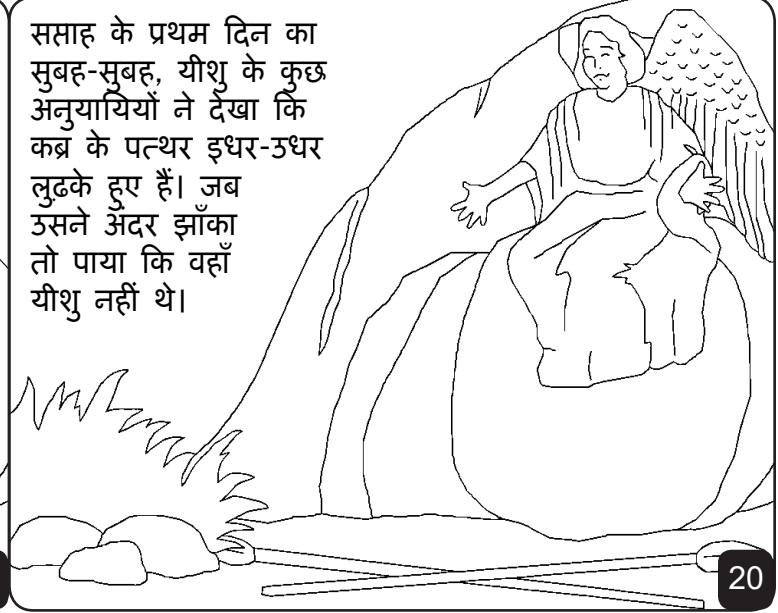 सप्ताह के प्रथम दिन का
सुबह-सुबह, यीशु के कुछ
अनुयायियों ने देखा कि
कब्र के पत्थर इधर-उधर
लुढ़के हुए हैं। जब
उसने अंदर झाँका
तो पाया कि वहाँ
यीशु नहीं थे।
20